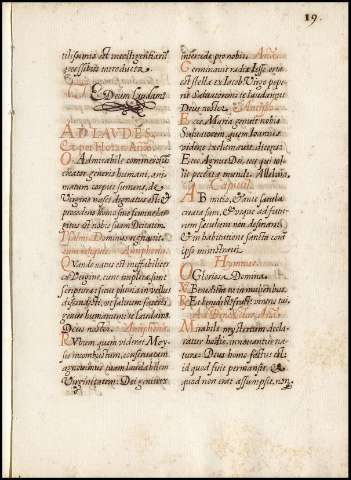 19.
Te Deum laudamus
AD LAVDES,
Et per Horas. Añā
O Admirabile commercium,
creator generis humani, ani-
matum corpus sumens, de
Virgine nasci dignatus est: et
procedens homo sine semine, lar-
gitus est nobis suam Deitatem.
Psalmi. Dominus regnavit,
cum reliquis. Antiphona.
Quando natus est ineffabiliter
ex Virgine, tunc impletæ sunt
scripturæ: sicut pluvia in vellus
descendisti, ut salvum faceres
genus humanum: te laudamus,
Deus noster. Antiphona.
Rubum quem viderat Moy-
ses incombustum, conservatam
agnovimus tuam laudabilem
Virginitatem: Dei genitrix
intercede pro nobis. Añā
Germinavit radix Iesse, orta
est stella ex Iacob, Virgo pepe-
rit Salvatorem: te laudamus
Deus noster. Antipho.
Ecce Maria genuit nobis
Salvatorem, quem Ioannes
videns exclamavit, dicens:
Ecce Agnus Dei, ecce qui tol-
lit peccata mundi. Alleluia.
Capitul.
AB initio, et ante sæcula
creata sum, et usque ad futu-
rum sæculum non desinam:
et in habitatione sancta coram
ipso ministravi.
Hymnus.
O Gloriosa Domina.
℣ Benedicta tu in mulieribus,
℟ Et benedictus fructus ventris tui.
Ad Benedictus, Añā
Mirabile mysterium decla-
ratur hodie, innovantur na-
turæ: Deus homo factus est:
id quod fuit permansit, et
quod non erat assumpsit, non